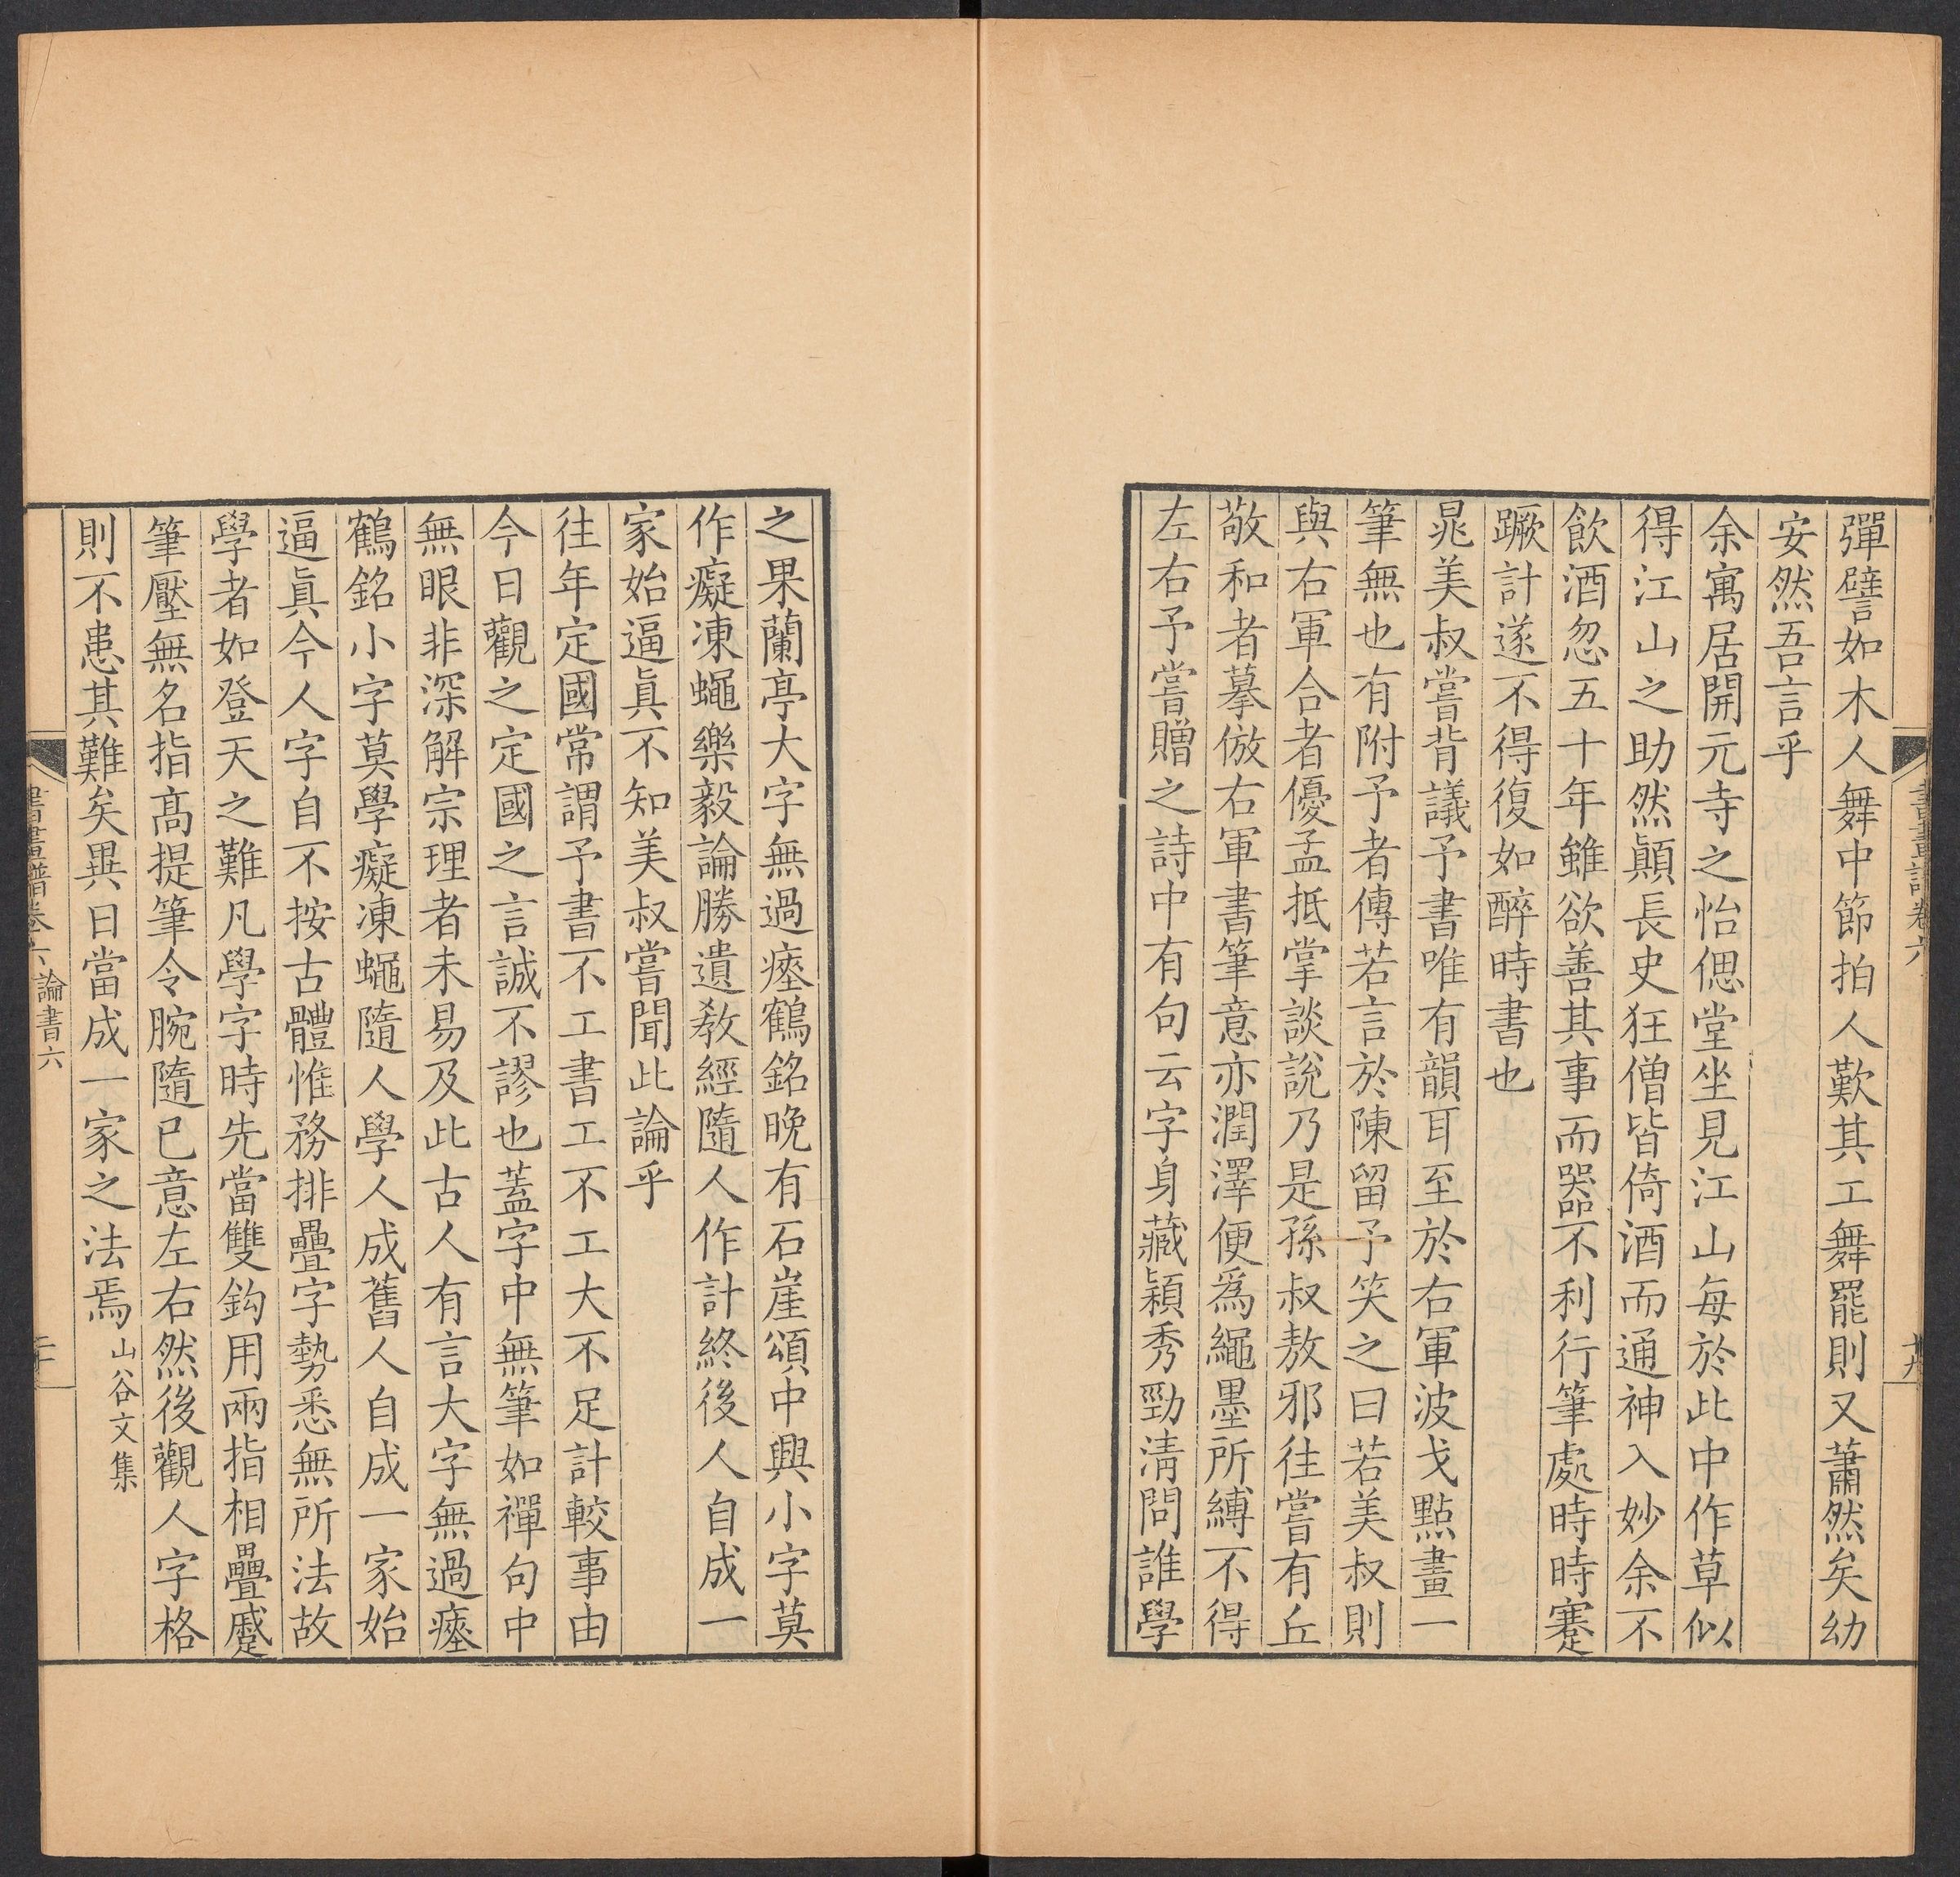 彈譬如木人舞中節拍人歎其工舞罷則又蕭然矣幼
安然吾言乎
余寓居開元寺之怡偲堂坐見江山每於此中作草似
得江山之助然顚長史狂僧皆倚酒而通神入妙余不
飲酒忽五十年雖欲善其事而器不利行筆處時時蹇
蹶計遂不得復如醉時書也
晁美叔嘗背議予書唯有韻耳至於右軍波戈點畫一
筆無也有附予者傳若言於陳留予笑之曰若美叔則
與右軍合者優孟抵掌談說乃是孫叔敖邪往嘗有丘
敬和者摹倣右軍書筆意亦潤澤便爲繩墨所縛不得
左右予嘗贈之詩中有句云字身藏穎秀勁清問誰學
書畫譜卷六
十九
之果蘭亭大字無過瘞鶴銘晚有石崖頌中興小字莫
作癡凍蠅樂毅論勝遺敎經隨人作計終後人自成一
家始逼眞不知美叔嘗聞此論乎
往年定國常謂予書不工書工不工大不足計較事由
今日觀之定國之言誠不謬也蓋字中無筆如禪句中
無眼非深解宗理者未易及此古人有言大字無過瘞
鶴銘小字莫學癡凍蠅隨人學人成舊人自成一家始
逼眞今人字自不按古體惟務排疊字勢悉無所法故
學者如登天之難凡學字時先當雙鈎用兩指相疊蹙
筆壓無名指高提筆令腕隨己意左右然後觀人字格
則不患其難矣異日當成一家之法焉山谷文集
書畫譜卷六 論書六
二十